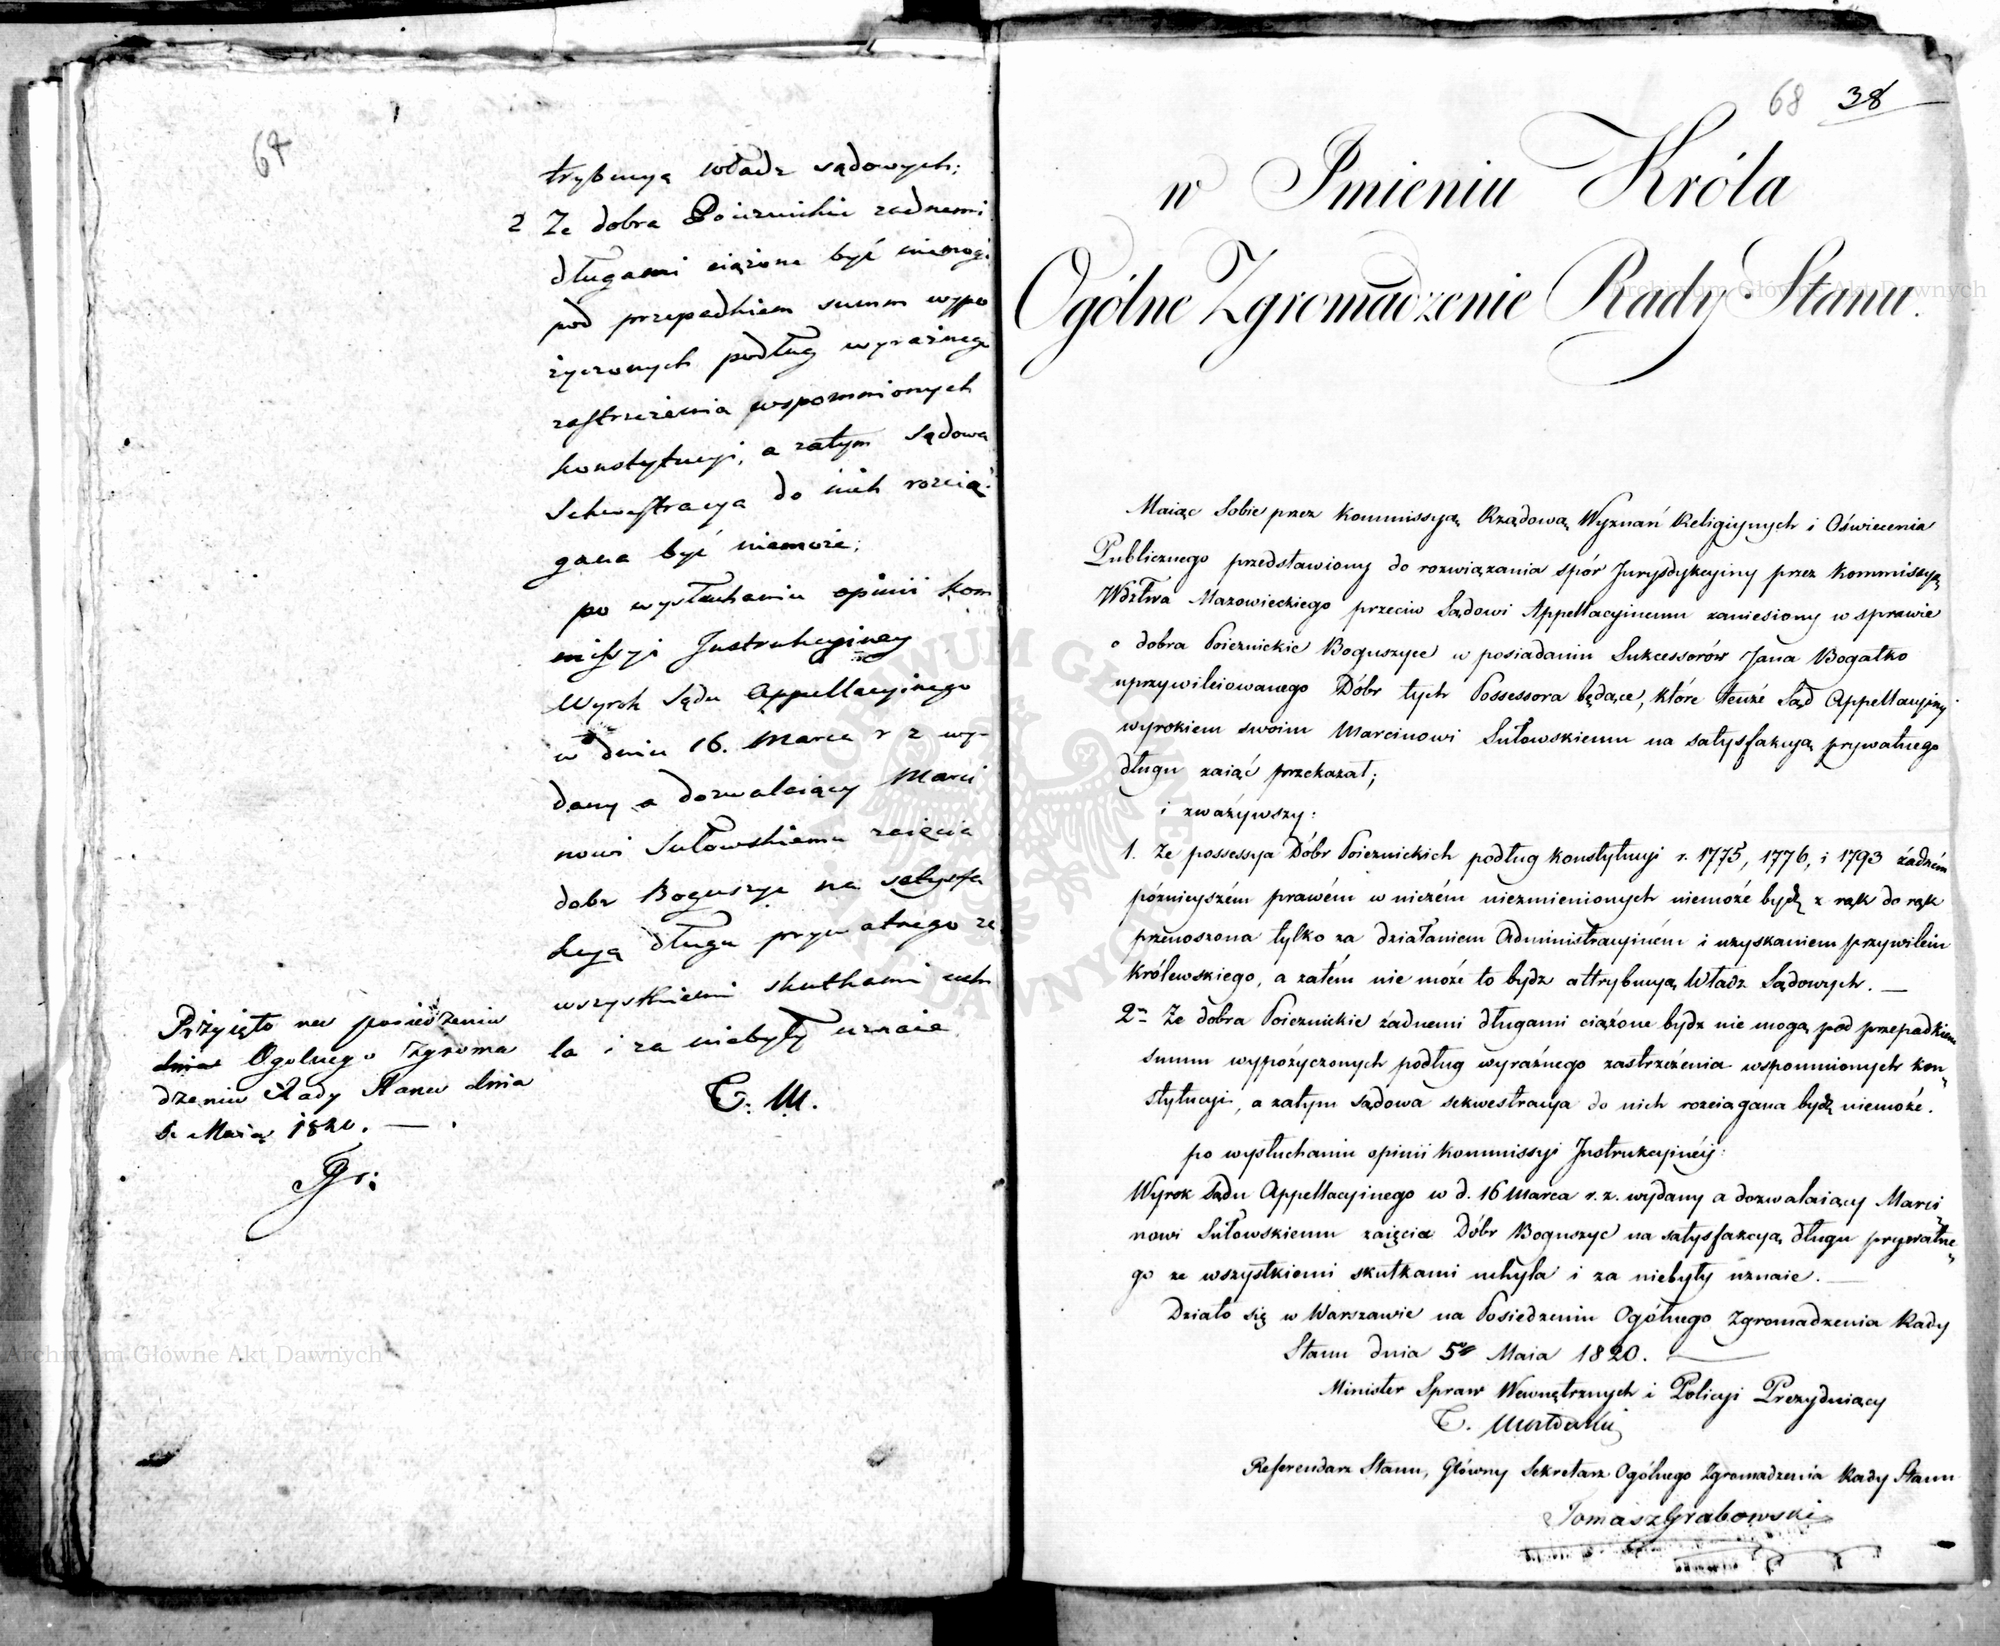 67
trybucyą władz sądowych;
2 Ze dobra Poiezuickie żadnemi
długami ciążone być niemogą
pod przepadkiem summ wypo
życzonych podług wyraźnego
zastrzeżenia wspomnionych
konstytucyi, a zatym sądowa
Sekwestracya do nich rozcią-
gana być niemoże;
po wysłuchaniu opinii Kom
missyi Instrukcyiney
Wyrok Sądu Appellacyinego
w dniu 16. Marca r z wy-
dany a dozwalaiący Marci
nowi Sutowskiemu zaięcia
dobr Boguszyc na satysfa
kcyą długu prywatnego ze
wszystkiemi skutkami uchy
la i za niebyły uznaie
T. M.
Przyięto na posiedzeniu
dnia Ogolnego Zgroma
dzenia Rady Stanu dnia
5. Maia 1820. —
Gr:
68 38
w Imieniu Króla
Ogólne Zgromadzenie Rady Stanu.
Maiąc sobie przez Kommissyą Rządową Wyznań Religiynych i Oświecenia
Publicznego przedstawiony do rozwiązania spór Jurysdykcyiny przez Kommissyą
Wdztwa Mazowieckiego przeciw Sądowi Appellacyinemu zaniesiony w sprawie
o dobra Poiezuickie Boguszyce w posiadaniu Sukcessorów Jana Bogatko
uprzywileiowanego Dóbr tych Possessora będące, które tenże Sąd Appellacyiny
wyrokiem swoim Marcinowi Sutowskiemu na satysfakcyą prywatnego
długu zaiąć przekazał;
i zważywszy:
1. Że possessya Dóbr Poiezuickich podług konstytucyi r. 1775, 1776, i 1793 żadném
późnieyszém prawém w niczém niezmienionych niemoże bydź z rąk do rąk
przenoszona tylko za działaniem Administracyiném i uzyskaniem przywileiu
Królewskiego, a zatém nie może to bydz attrybucyą Władz Sądowych. —
2re Że dobra Poiezuickie żadnemi długami ciążone bydz nie mogą pod przepadkiem
summ wypożyczonych podług wyraźnego zastrzeżenia wspomnionych kon„
stytucyi, a zatym sądowa sekwestracya do nich rozciągana bydź niemoże.
po wysłuchaniu opinii Kommissyi Instrukcyinéy:
Wyrok Sądu Appellacyinego w d. 16 Marca r. z. wydany a dozwalaiący Marci„
nowi Sutowskiemu zaięcia Dóbr Boguszyc na satysfakcyą długu prywatne„
go ze wszystkiemi skutkami uchyla i za niebyły uznaie. —
Działo się w Warszawie na Posiedzeniu Ogólnego Zgromadzenia Rady
Stanu dnia 5go Maia 1820. —
Minister Spraw Wewnętrznych i Policyi Prezyduiący
T. Mostowski
Referendarz Stanu, Główny Sekretarz Ogólnego Zgromadzenia Rady Stanu
Tomasz Grabowski
Archiwum Główne Akt Dawnych
Archiwum Główne Akt Dawnych